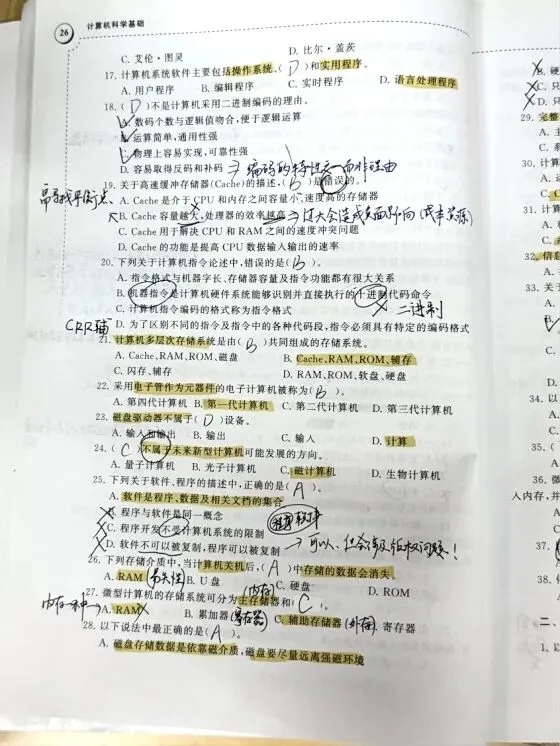 26 计算机科学基础
C. 艾伦·图灵 D. 比尔·盖茨
17. 计算机系统软件主要包括操作系统、( D )和实用程序。
A. 用户程序 B. 编辑程序 C. 实时程序 D. 语言处理程序
18. ( D )不是计算机采用二进制编码的理由。
A. 数码个数与逻辑值吻合,便于逻辑运算
B. 运算简单,通用性强
C. 物理上容易实现,可靠性强
D. 容易取得反码和补码 → 编码的特性之一而非理由
19. 关于高速缓冲存储器(Cache)的描述,( B )是错误的。
A. Cache 是介于 CPU 和内存之间容量小、速度高的存储器
B. Cache 容量越大,处理器的效率越高 → 过大会造成负面影响(成本资源)
C. Cache 用于解决 CPU 和 RAM 之间的速度冲突问题
D. Cache 的功能是提高 CPU 数据输入输出的速率
20. 下列关于计算机指令论述中,错误的是( B )。
A. 指令格式与机器字长、存储器容量及指令功能都有很大关系
B. 机器指令是计算机硬件系统能够识别并直接执行的十进制代码命令
C. 计算机指令编码的格式称为指令格式 二进制
D. 为了区别不同的指令及指令中的各种代码段,指令必须具有特定的编码格式
CRR辅
21. 计算机多层次存储系统是由( B )共同组成的存储系统。
A. Cache、RAM、ROM、磁盘 B. Cache、RAM、ROM、辅存
C. 闪存、辅存 D. RAM、ROM、软盘、硬盘
22. 采用电子管作为元器件的电子计算机被称为( B )。
A. 第四代计算机 B. 第一代计算机 C. 第二代计算机 D. 第三代计算机
23. 磁盘驱动器不属于( D )设备。
A. 输入和输出 B. 输出 C. 输入 D. 计算
24. ( C )不属于未来新型计算机可能发展的方向。
A. 量子计算机 B. 光子计算机 C. 磁计算机 D. 生物计算机
25. 下列关于软件、程序的描述中,正确的是( A )。
A. 软件是程序、数据及相关文档的集合
B. 程序与软件是同一概念
C. 程序开发不受计算机系统的限制
D. 软件不可以被复制,程序可以被复制 → 可以,但会涉及版权问题!
26. 下列存储介质中,当计算机关机后,( A )中存储的数据会消失。
A. RAM (易失性) B. U 盘 C. 硬盘 D. ROM
27. 微型计算机的存储系统可分为主存储器和( C )。 (内存)
内存一种 → A. RAM B. 累加器 (寄存器) C. 辅助存储器 (外存) 寄存器
28. 以下说法中最正确的是( A )。
A. 磁盘存储数据是依靠磁介质,磁盘要尽量远离强磁环境